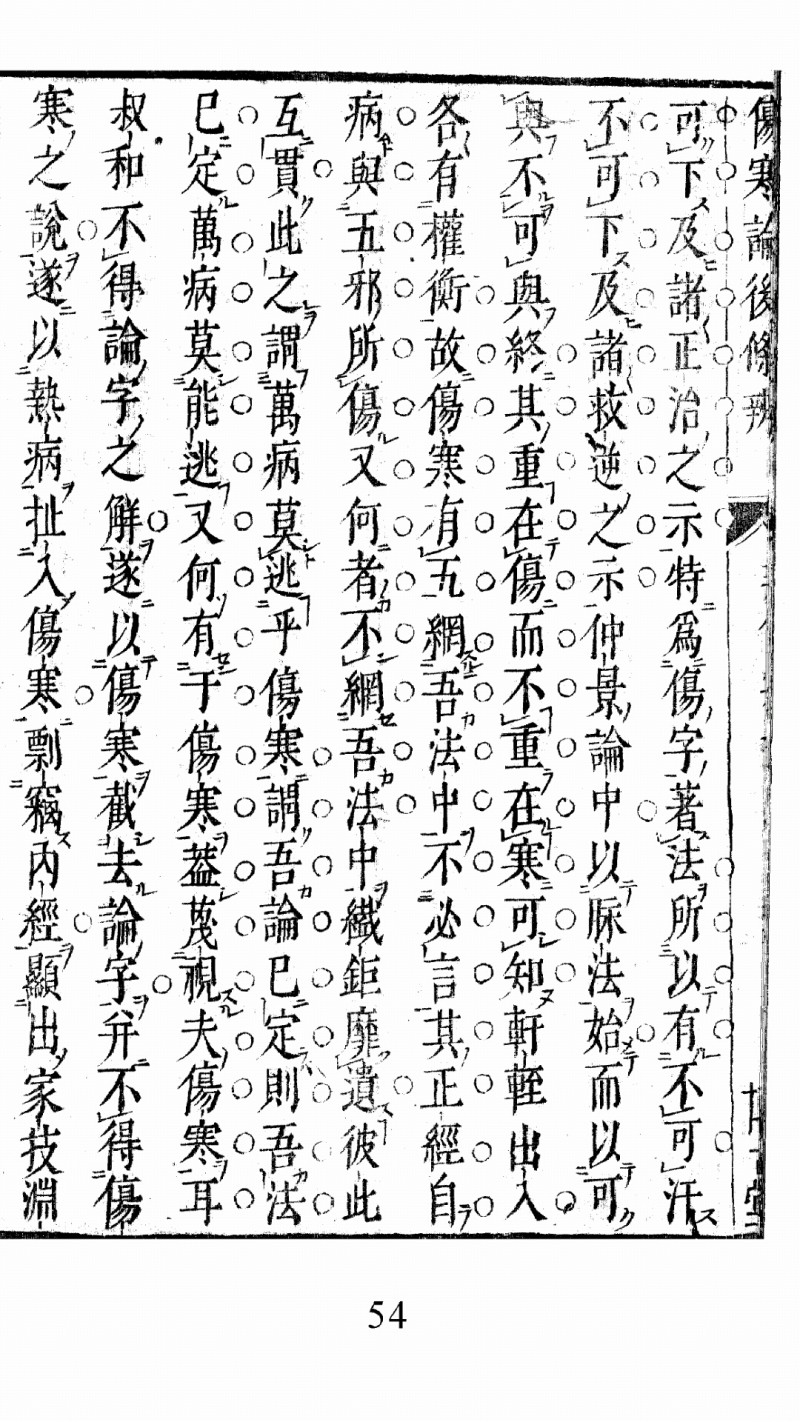 傷寒論後條辨
可下及諸正治之示特爲傷字著法所以有不可汗
不可下及諸救逆之示仲景論中以脉法始而以可
與不可與終其重在傷而不重在寒可知軒輊出入
各有權衡故傷寒有五網吾法中不必言其正經自
病與五邪所傷又何者不網吾法中纖鉅靡遺彼此
互貫此之謂萬病莫逃乎傷寒謂吾論已定則吾法
已定萬病莫能逃又何有于傷寒蓋蔑視夫傷寒耳
叔和不得論字之解遂以傷寒截去論字并不得傷
寒之說遂以熱病扯入傷寒剽竊內經顯出家技淵
54